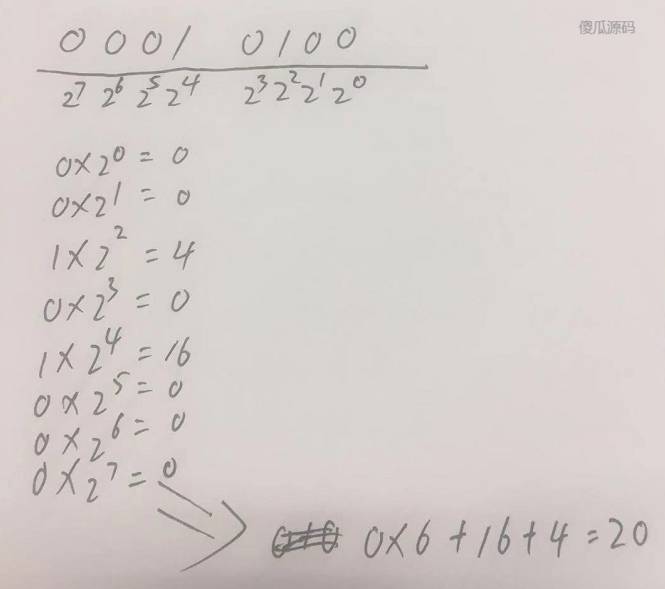 傻瓜源码
0 0 0 1 0 1 0 0
2⁷ 2⁶ 2⁵ 2⁴ 2³ 2² 2¹ 2⁰
0×2⁰ = 0
0×2¹ = 0
1×2² = 4
0×2³ = 0
1×2⁴ = 16
0×2⁵ = 0
0×2⁶ = 0
0×2⁷ = 0
0×6+16+4=20